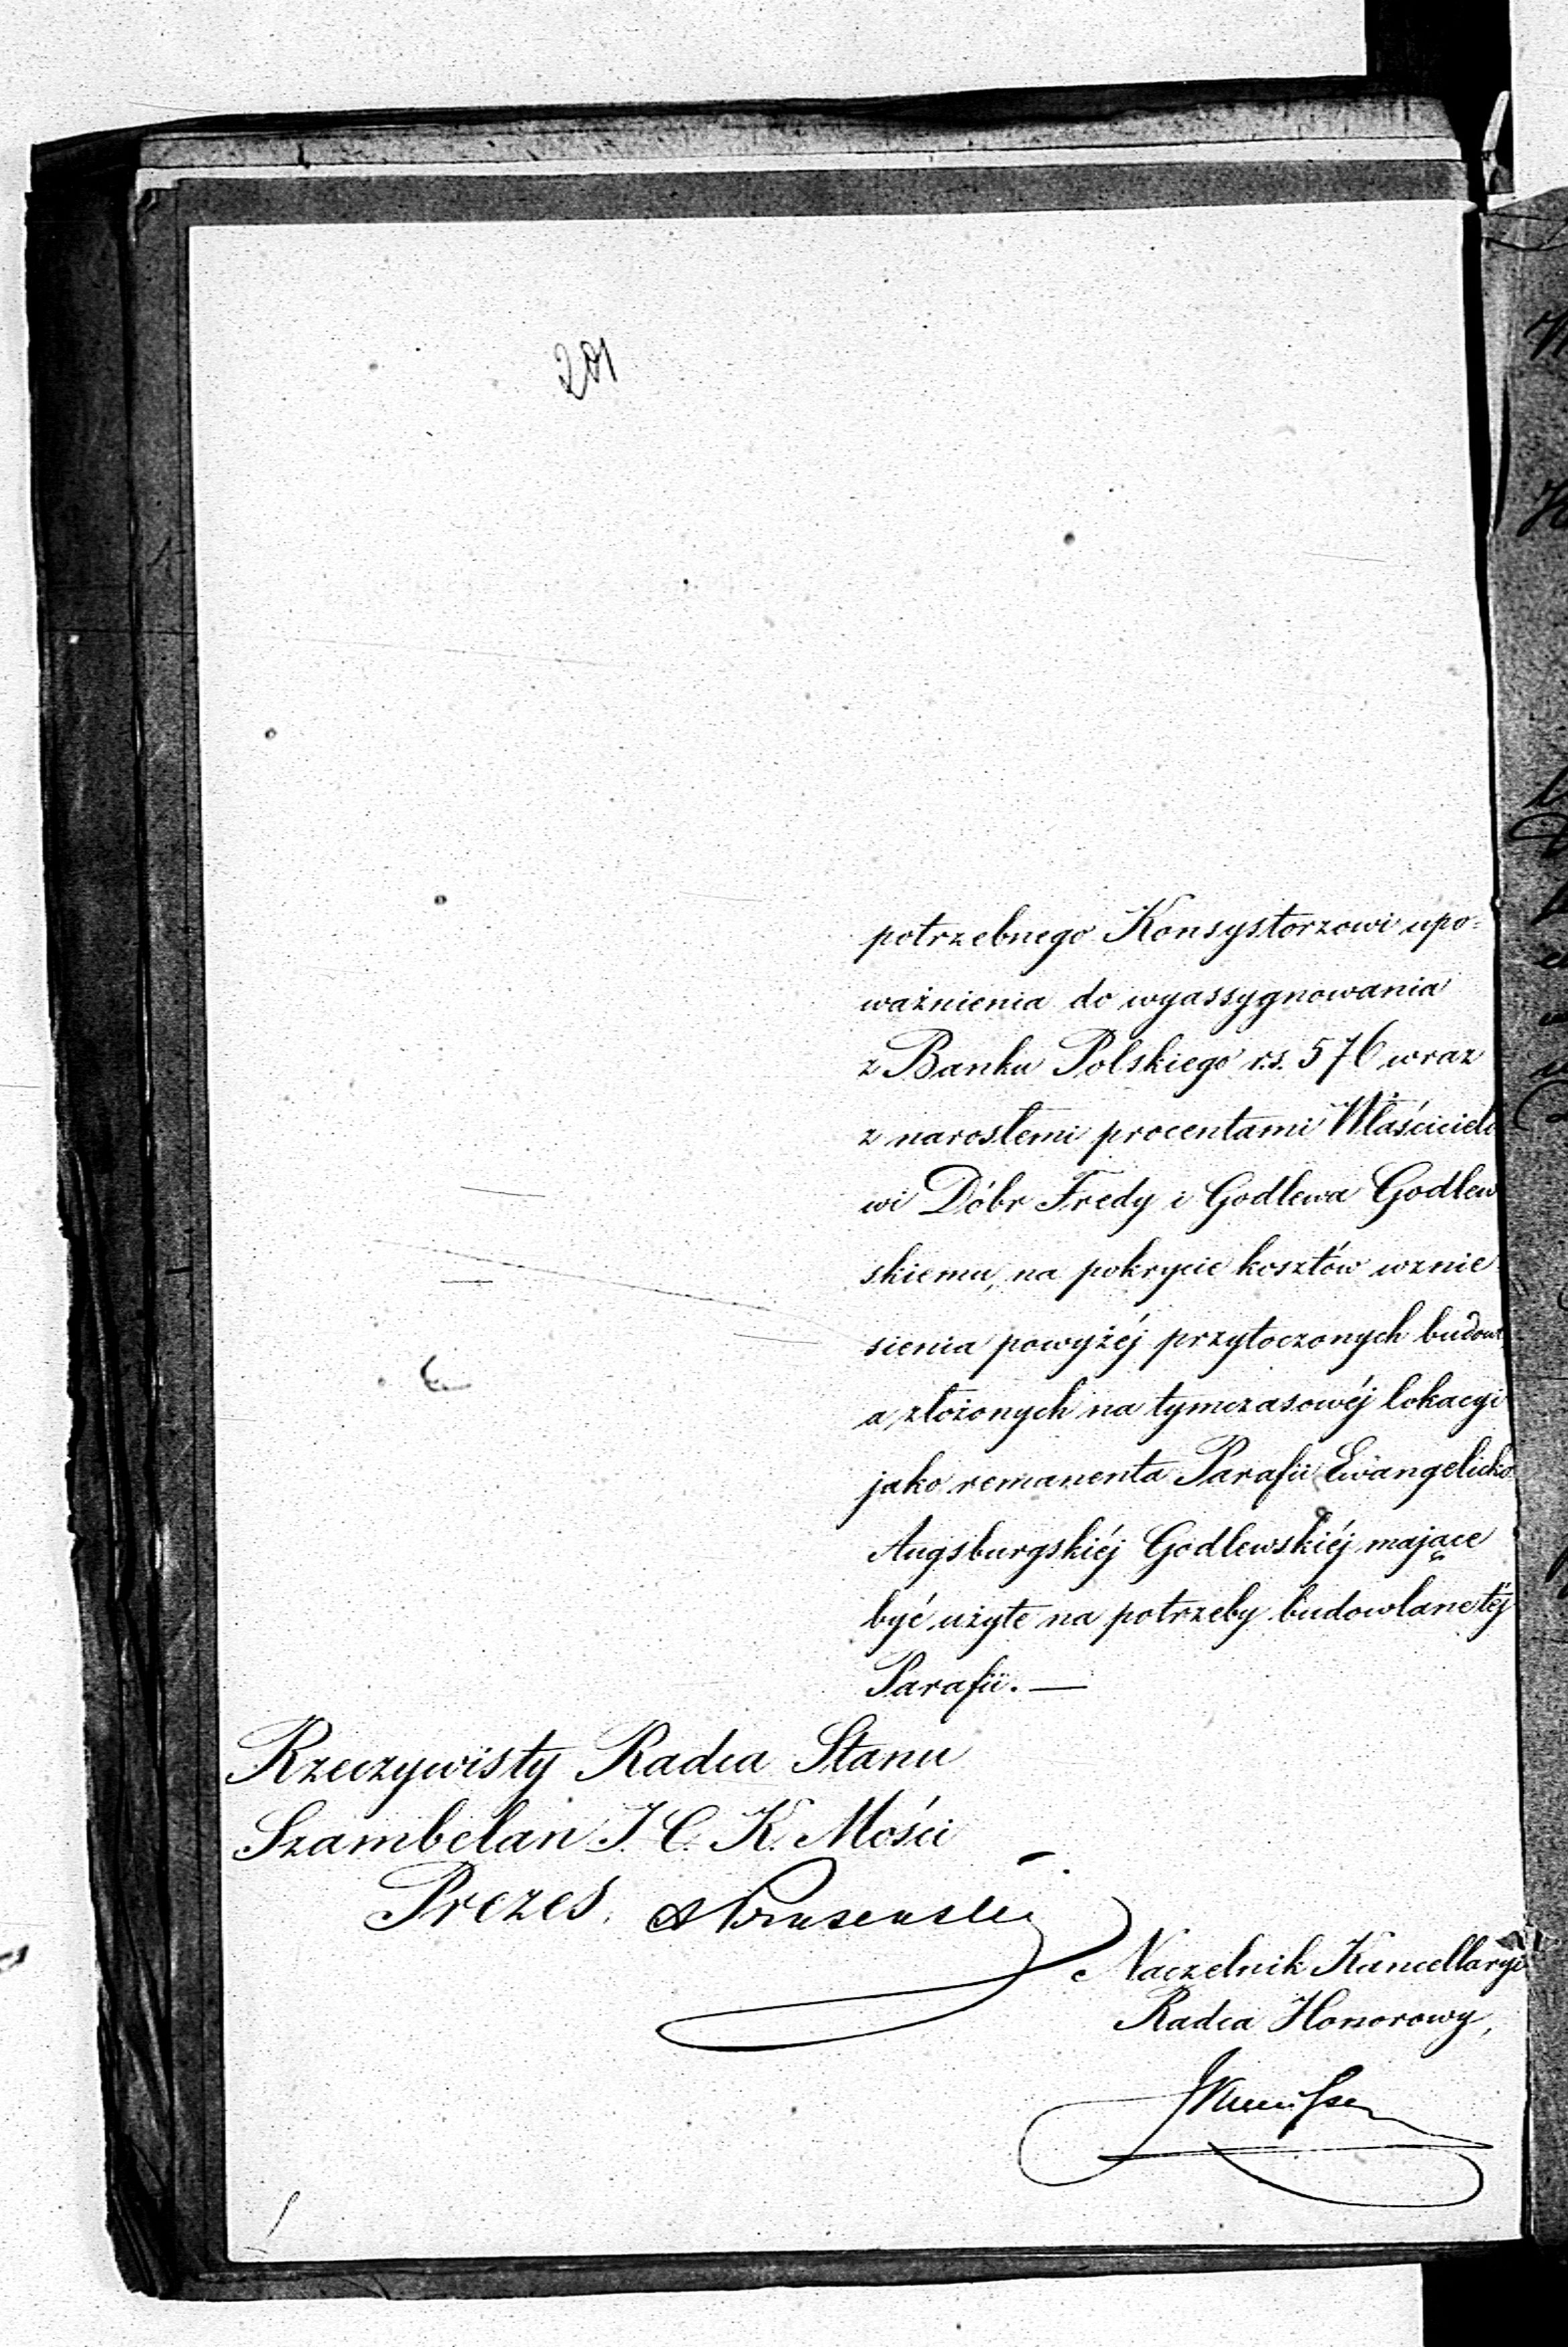 201
potrzebnego Konsystorzowi upo=
ważnienia do wyassygnowania
z Banku Polskiego r.s. 576 wraz
z narosłemi procentami Właścicielo
wi Dóbr Fredy i Godlewa Godlew
skiemu, na pokrycie kosztów wznie
sienia powyżéj przytoczonych budowl
a złożonych na tymczasowéj lokacyi
jako remanenta Parafii Ewangelicko
Augsburgskiéj Godlewskiéj mające
być użyte na potrzeby budowlane téj
Parafii. —
Rzeczywisty Radca Stanu
Szambelan J. C. K. Mości
Prezes.
Naczelnik Kancellaryi
Radca Honorowy,